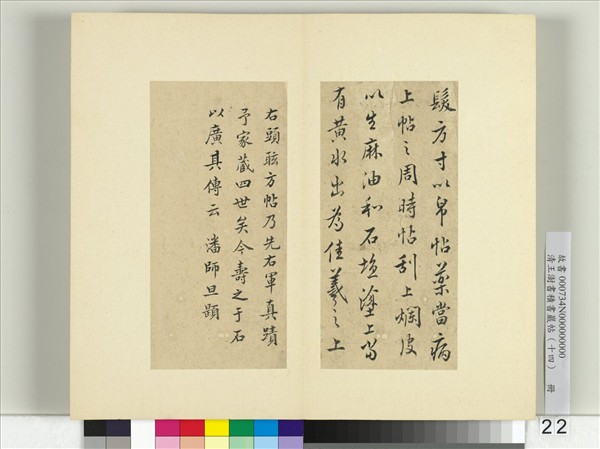 髮方寸以帛帖藥當病
上帖之周時帖刮上爛皮
以生麻油和石塩塗上當
有黃水出為佳羲之上
右頭眩方帖乃先右軍真蹟
予家藏四世矣今壽之于石
以廣其傳云 潘師旦題
故書000734N000000000
清王澍書積書巖帖(十四) 冊
22